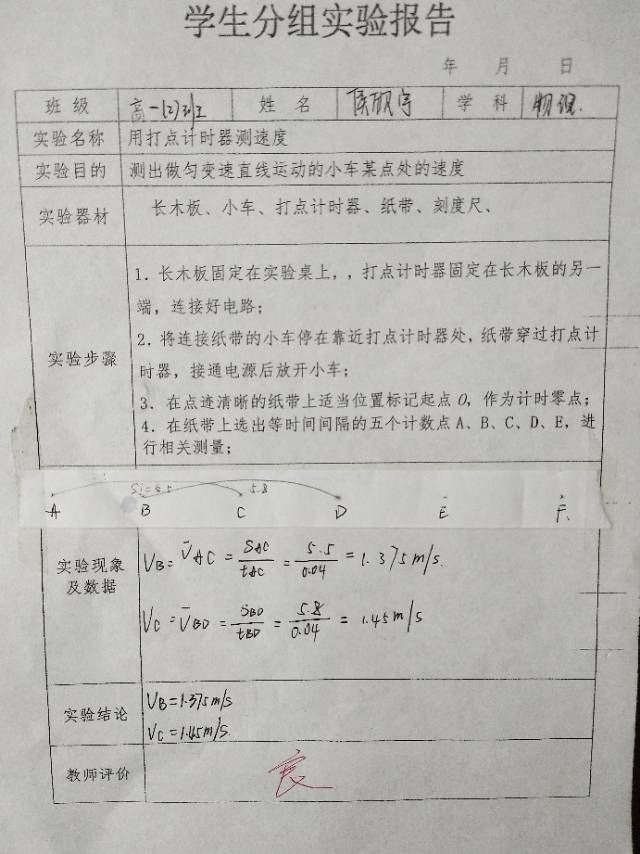 学生分组实验报告
年 月 日
班 级 高一(2)班 姓 名 宇 学 科 物理.
实验名称 用打点计时器测速度
实验目的 测出做匀变速直线运动的小车某点处的速度
实验器材 长木板、小车、打点计时器、纸带、刻度尺、
1. 长木板固定在实验桌上,,打点计时器固定在长木板的另一
端,连接好电路;
2. 将连接纸带的小车停在靠近打点计时器处,纸带穿过打点计
时器,接通电源后放开小车;
实验步骤
3. 在点迹清晰的纸带上适当位置标记起点 O,作为计时零点;
4. 在纸带上选出等时间间隔的五个计数点 A、B、C、D、E,进
行相关测量;
5.8
A B C D E F
实验现象
及数据
VB = V̄AC = SAC/tAC = 5.5/0.04 = 1.375m/s.
VC = V̄BD = SBD/tBD = 5.8/0.04 = 1.45m/s
实验结论
VB=1.375m/s
VC=1.45m/s.
教师评价 良